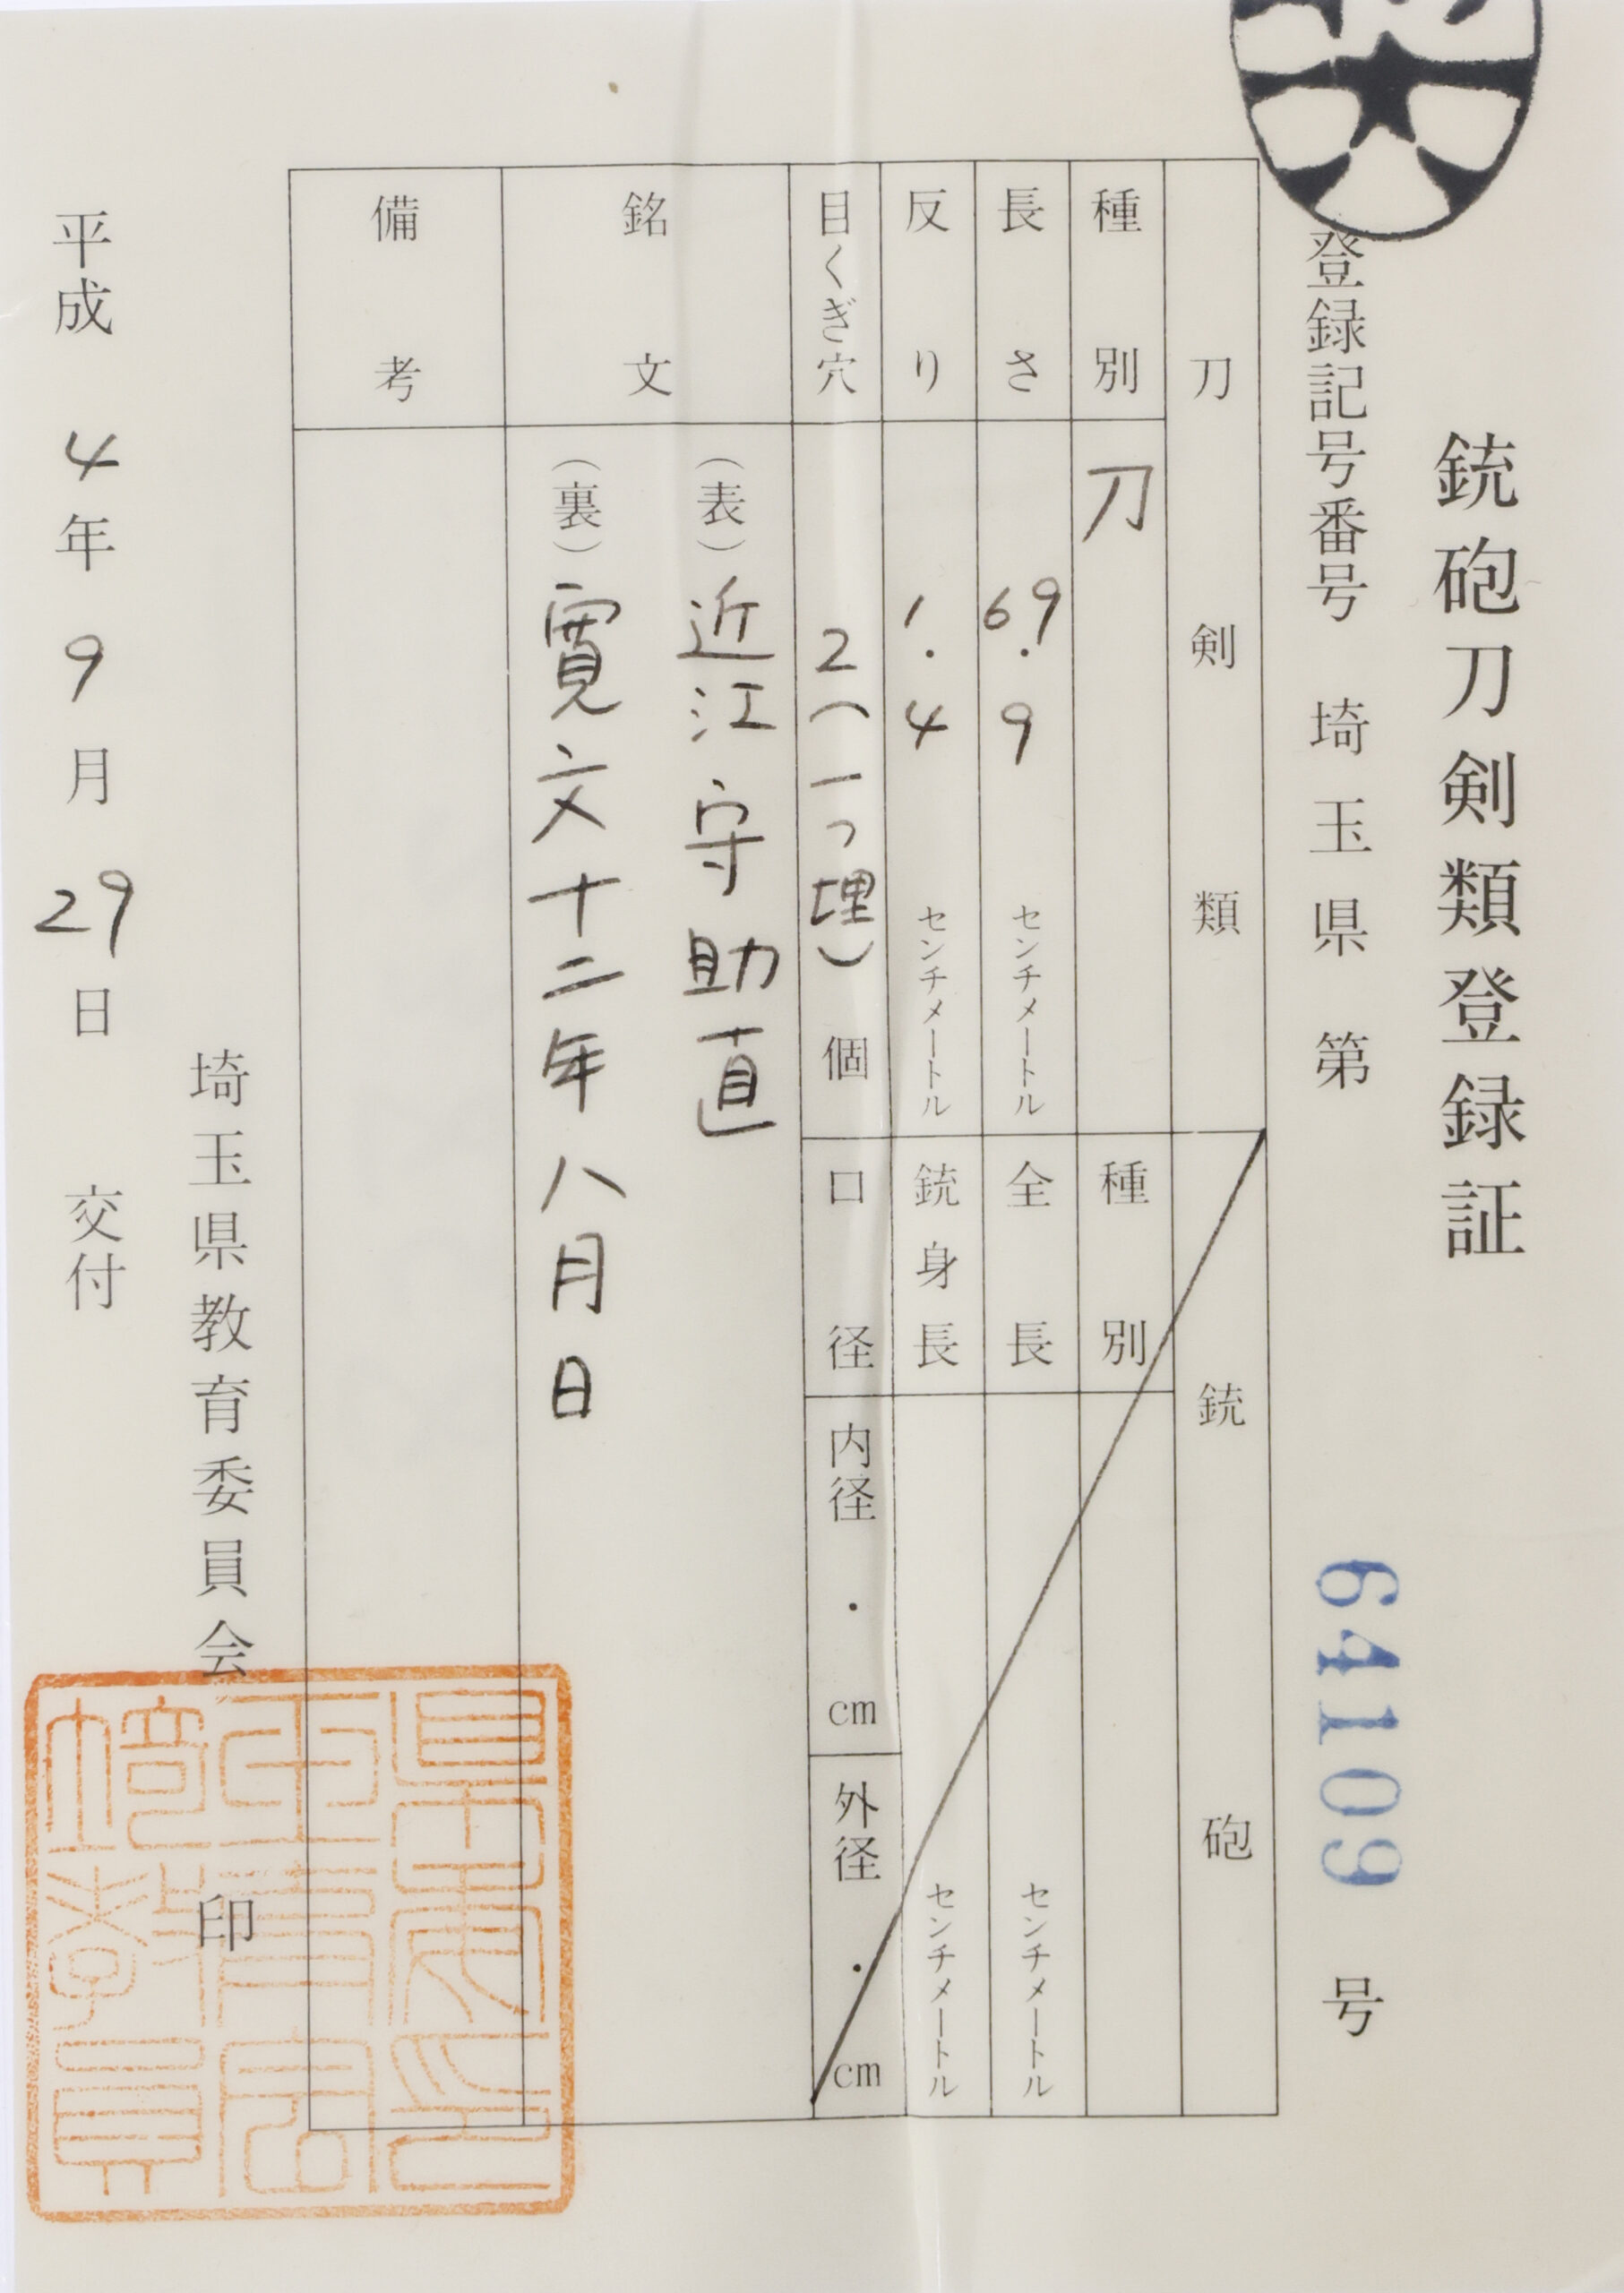 銃砲刀剣類登録証
登録記号番号 埼玉県 第 64109 号
刀剣類
種別 刀
長さ 69.9 センチメートル
反り 1.4 センチメートル
目くぎ穴 2(一つ埋) 個
銃砲
種別
全長 センチメートル
銃身長 センチメートル
口径 内径 ・ cm 外径 ・ cm
銘文
(表) 近江守助直
(裏) 寛文十二年八月日
備考
埼玉県教育委員会 印
平成 4年 9月 29日 交付